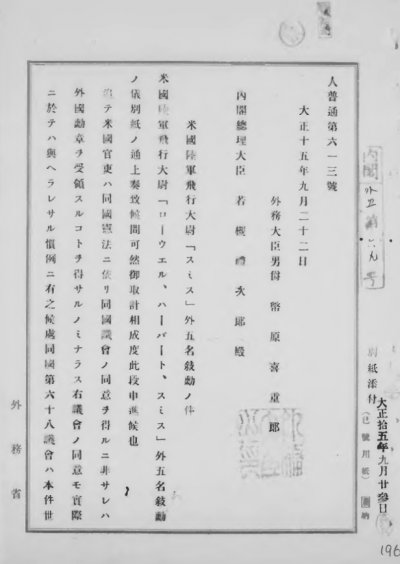 人普通第六一三號
大正十五年九月二十二日
外務大臣男爵 幣原喜重郎
內閣總理大臣 若槻禮次郎殿
米國陸軍飛行大尉「スミス」外五名敍勳ノ件
米國陸軍飛行大尉「ローウエル、ハーバート、スミス」外五名敍勳
ノ儀別紙ノ通上奏致候間可然御取計相成度此段申進候也
テ米國官吏ハ同國憲法ニ依リ同國議會ノ同意ヲ得ルニ非サレハ
外國勳章ヲ受領スルコトヲ得サルノミナラス右議會ノ同意モ實際
ニ於テハ與ヘラレサル慣例ニ有之候處同國第六十八議會ハ本件世
外務省
別紙添付
大正拾五年九月廿參日
196